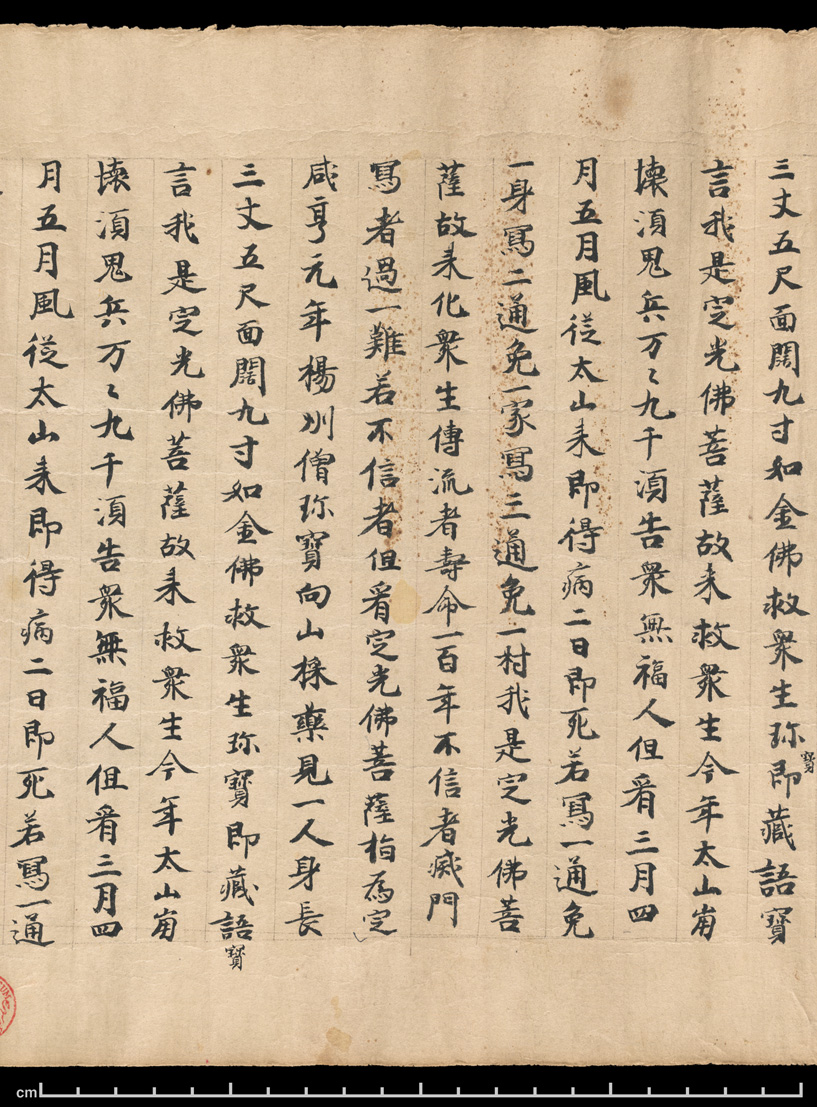 三丈五尺面闊九寸如金佛救衆生珎寳即藏語寳
言我是㝎光佛菩薩故来救衆生今年太山崩
壊湏鬼兵万〻九千湏告衆無福人但看三月四
月五月風從太山来即得病二日即死若冩一通免
一身冩二通免一家冩三通免一村我是㝎光佛菩
薩故来化衆生傳流者壽命一百年不信者滅門
冩者過一難若不信者但看㝎光佛菩薩指為㝎
咸亨元年楊州僧珎寳向山採藥見一人身長
三丈五尺面闊九寸如金佛救衆生珎寳即藏語寳
言我是㝎光佛菩薩故来救衆生今年太山崩
壊湏鬼兵万〻九千湏告衆無福人但看三月四
月五月風從太山来即得病二日即死若冩一通